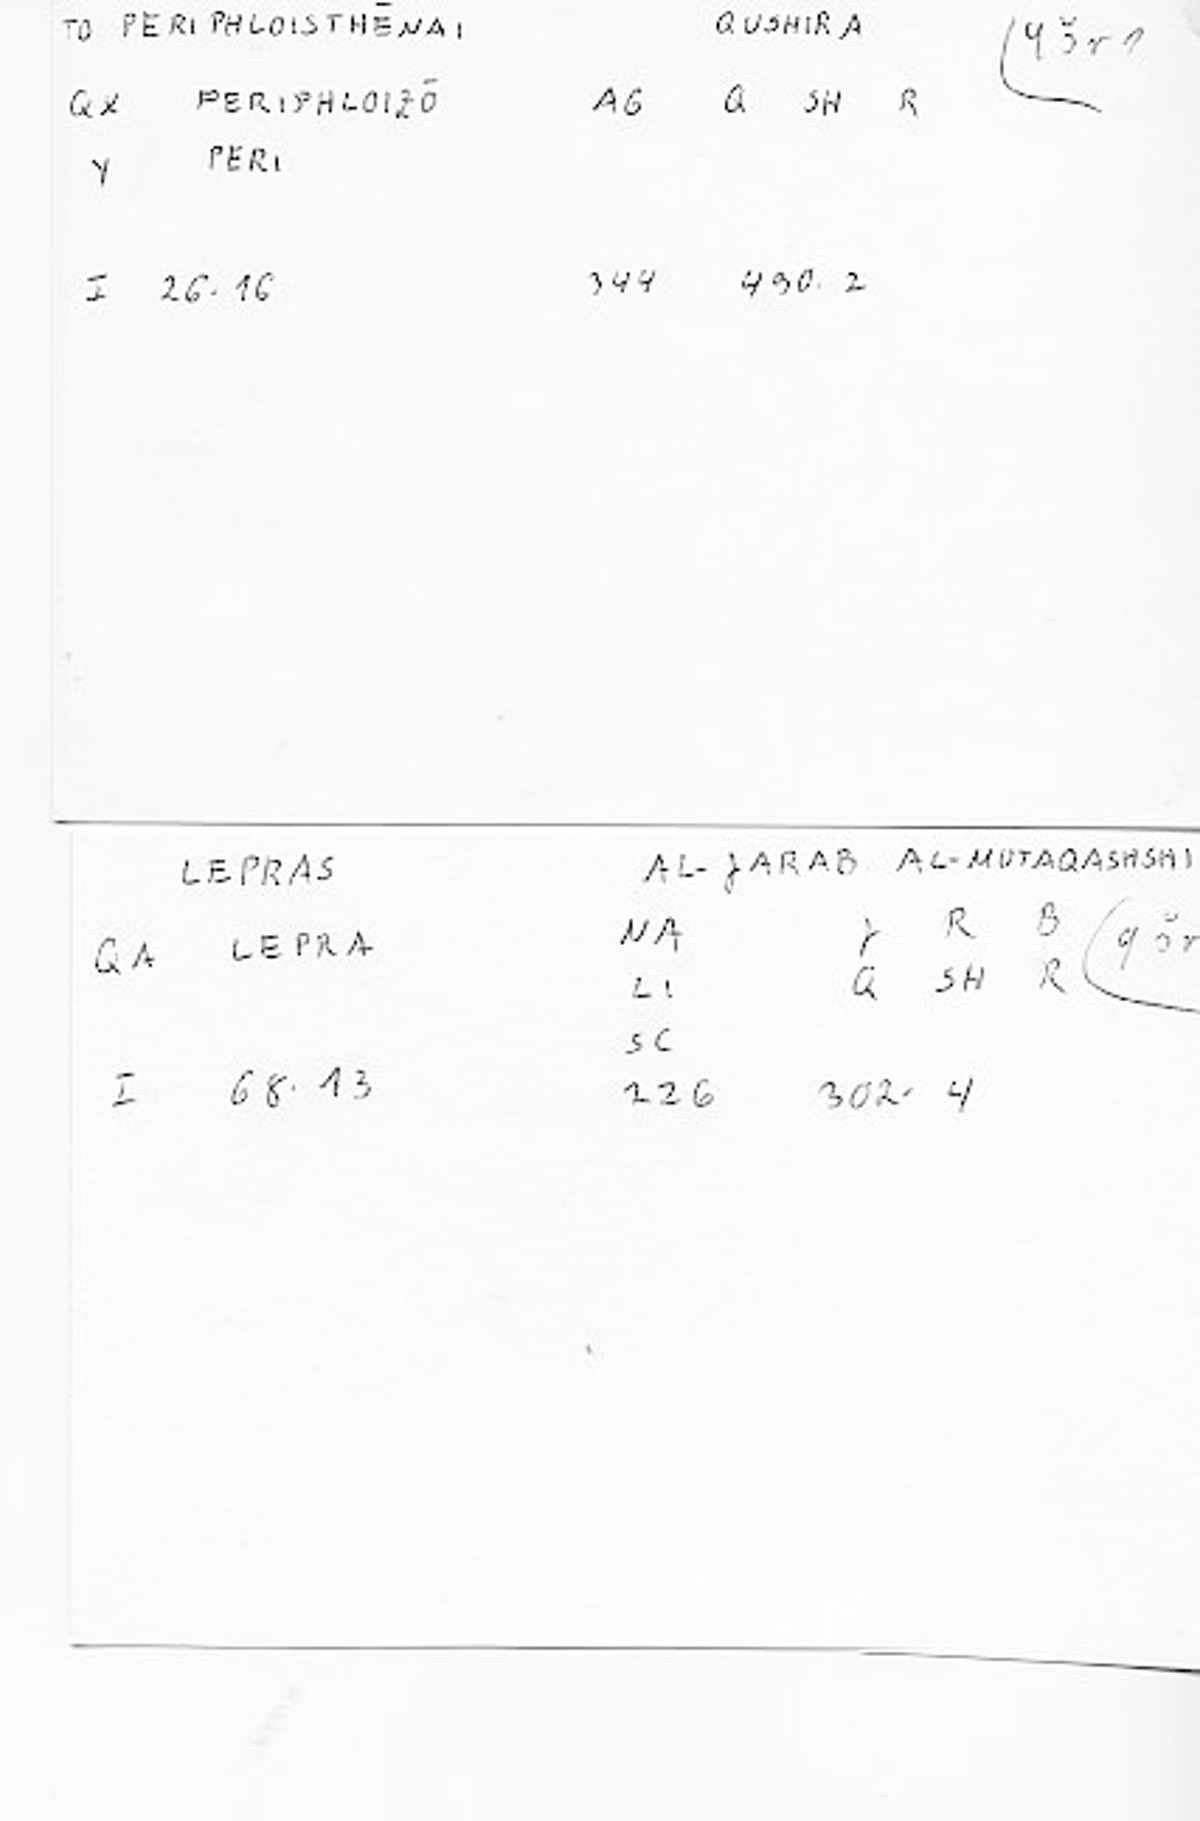 TO PERIPHLOISTHĒNAI QUSHIRA qšr1
QX PERIPHLOIZŌ AG Q SH R
Y PERI
I 26.16 344 490.2
LEPRAS AL-JARAB AL-MUTAQASHSHI
QA LEPRA NA J R B qšr
LI Q SH R
SC
I 68.13 226 302.4